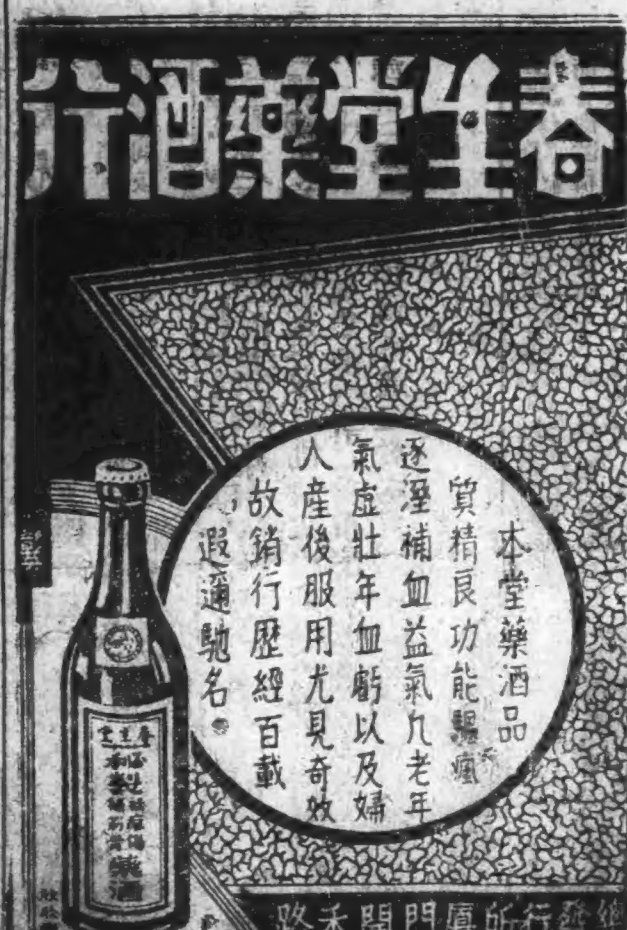 春生堂藥酒行
本堂藥酒品
質精良功能驅瘋
逐溼補血益氣凢老年
氣虛壯年血虧以及婦
人產後服用尤見奇效
故銷行歷經百載
遐邇馳名
春生堂
酒
總發行所廈門開禾路